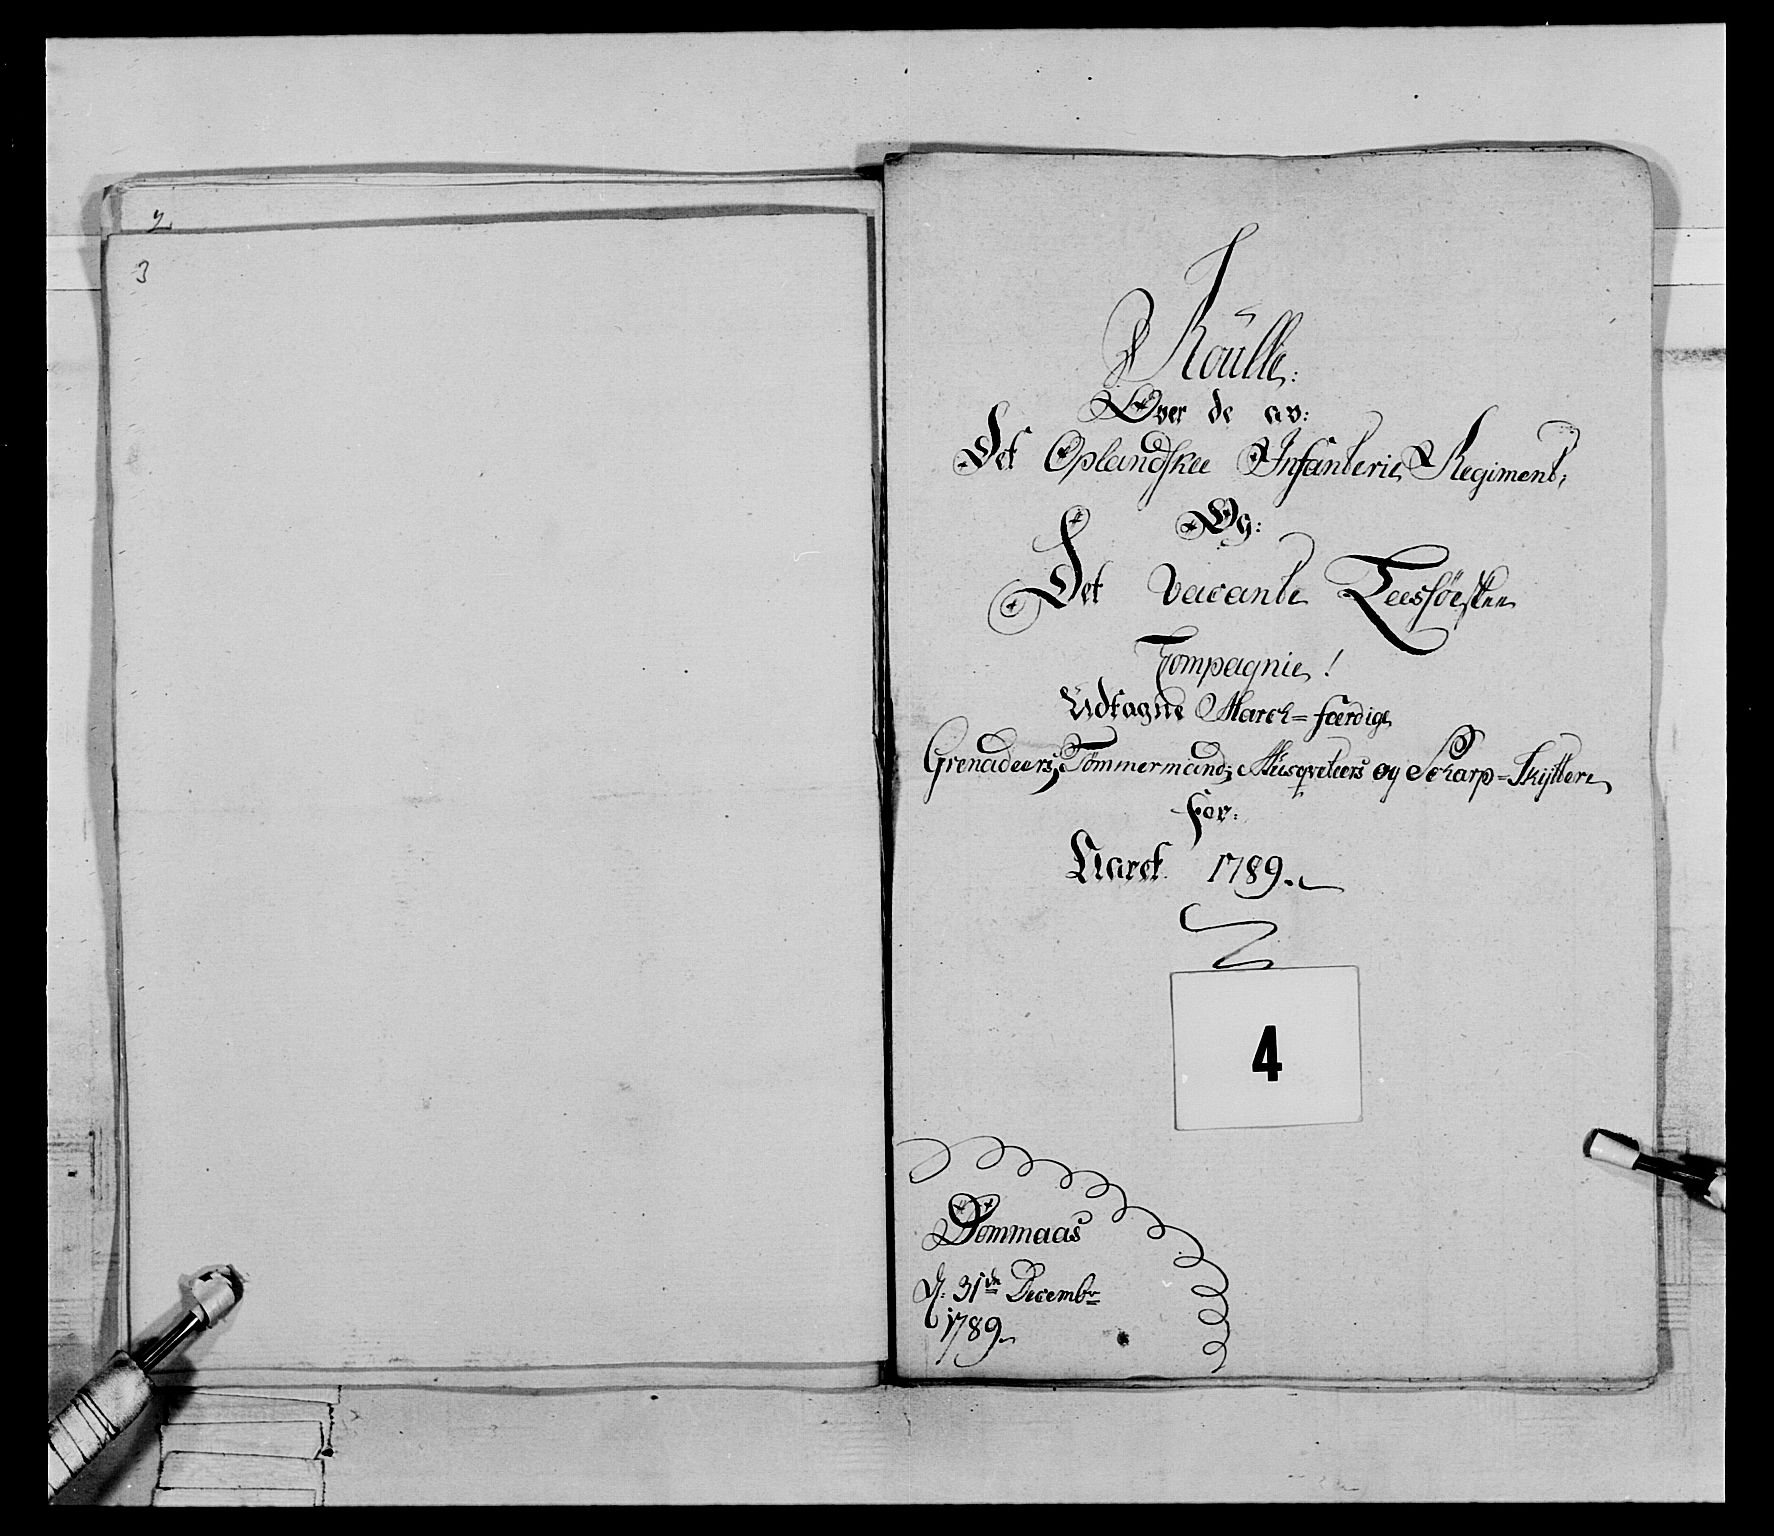 2
3
Roulle:
Over de av:
Det Oplandske Infanterie Regiment,
Og:
Det vacante Leesföeske
Compagnie!
Udtagne March=færdige
Grenadeers, Tömmermænd, Musqveteers og Scharp=Skyttere
for:
Aaret 1789.
4
Dommaas
d: 31te Decembr
1789.